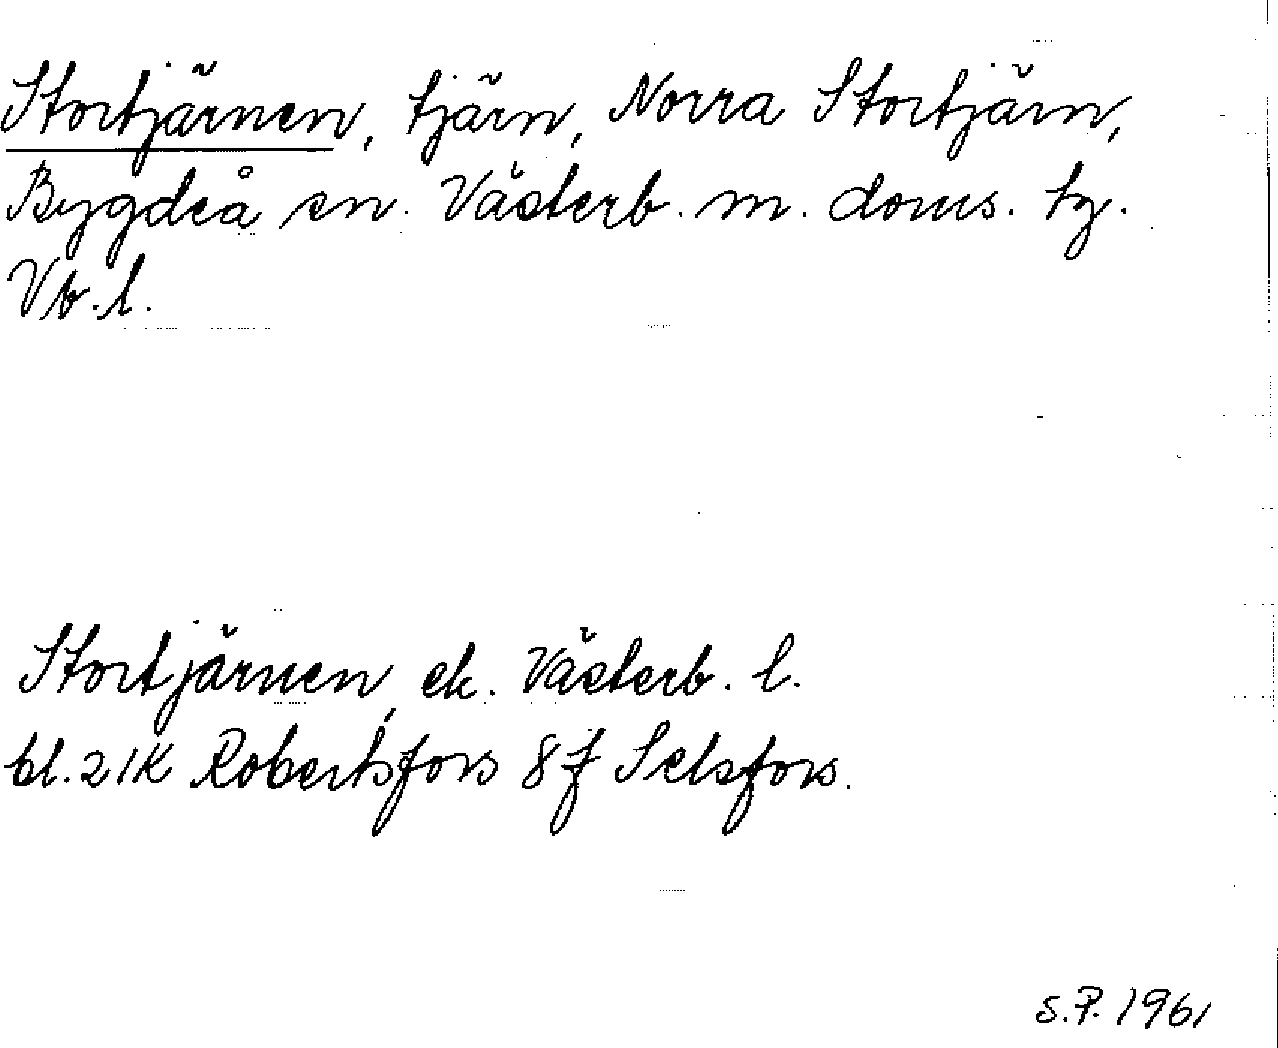 Stortjärnen, tjärn, Norra Stortjärn,
Bygdeå sn. Västerb. m. doms. tg.
Vb. l.
Stortjärnen, ek. Västerb. l.
bl. 21K Robertsfors 8f Selsfors.
S.P. 1961